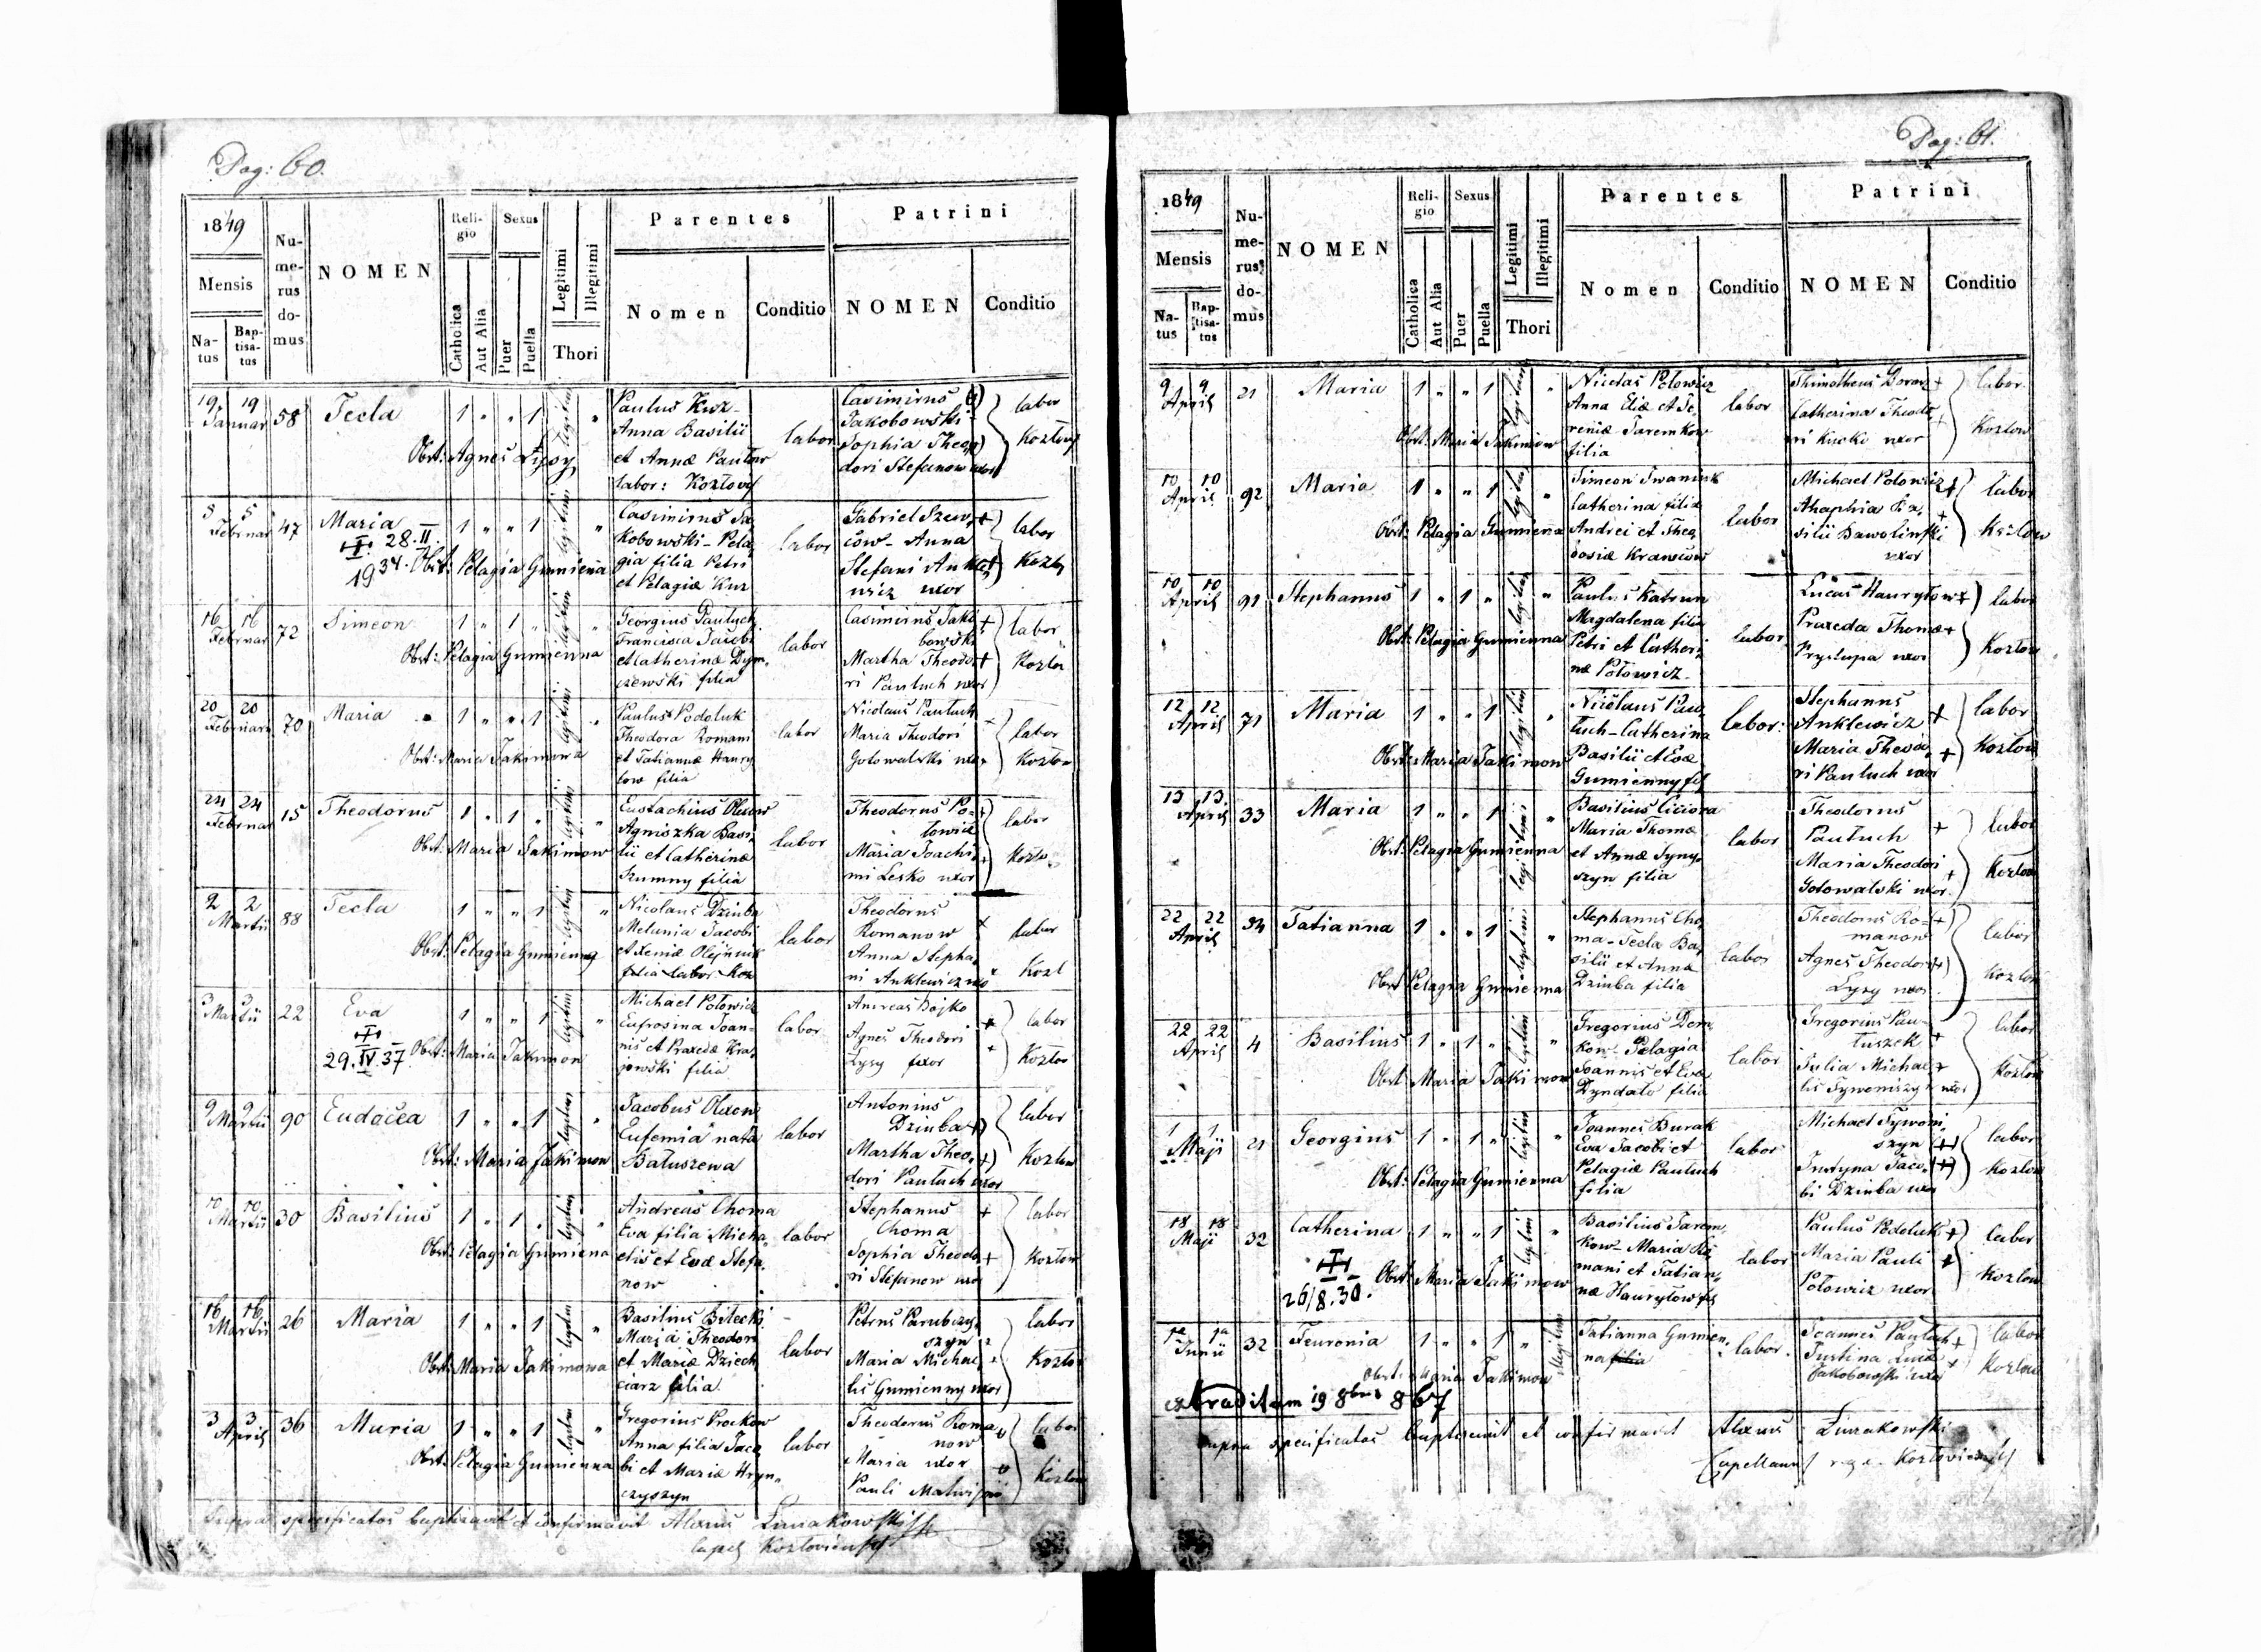 Pag: 60.
1849
Mensis
Na-
tus
Bap-
tisa-
tus
Nu-
me-
rus
do-
mus
NOMEN
Reli-
gio
Catholica
Aut Alia
Sexus
Puer
Puella
Legitimi
Illegitimi
Thori
Parentes
Nomen
Conditio
Patrini
NOMEN
Conditio
19 19
Januar
58
Tecla
1 " " 1
Obst: Agnes Łysy
Paulus Kuz-
Anna Basilii
et Annæ Pautow
labor: Kozłov
labor
Casimirus
Jakobowski
Sophia Theo-
dori Stefanow uxor
labor
Kozłov
5 5
Februar
47
Maria
28. II.
1934.
1 " " 1
Obst: Pelagia Gumienna
Casimirus Ja-
kobowski - Pela-
gia filia Petri
et Pelagiæ Kuz
labor
Gabriel Szew-
cow - Anna
Stefani Ankle-
wicz uxor
labor
Kozłov
16 16
Februar
72
Simeon
1 " 1 "
Obst: Pelagia Gumienna
Georgius Pautuch
Francisca Jacobi
et Catherinæ Dym-
czewski filia
labor
Casimirus Jako-
bowski
Martha Theodo-
ri Pautuch uxor
labor
Kozłov
20 20
Februar
70
Maria
1 " " 1
Obst: Maria Jakimowa
Paulus Podoluk
Theodora Romani
et Tatiannæ Haury-
low filia
labor
Nicolaus Pautuch
Maria Theodori
Gołowalski uxor
labor
Kozłow
24 24
Februar
15
Theodorus
1 " 1 "
Obst: Maria Jakimow
Eustachius Olexow
Agniszka Basi-
lii et Catherinæ
Szumny filia
labor
Theodorus Po-
łowicz
Maria Joachi-
mi Lesko uxor
labor
Kozło
2 2
Martii
88
Tecla
1 " " 1
Obst: Pelagia Gumienna
Nicolaus Dziuba
Melania Jacobi
et Xeniæ Olejnik
filia labor Koz
labor
Theodorus
Romanow
Anna Stepha-
ni Anklewicz
labor
Kozł
3 3
Martii
22
Eva
29. IV. 37.
1 " " 1
Obst: Maria Jakimow
Michael Połowicz
Eufrosina Joan-
nis et Praxedæ Kra-
jewski filia
labor
Andreas Bojko
Agnes Theodori
Łysy uxor
labor
Kozłow
9 9
Martii
90
Eudocea
1 " " 1
Obst: Maria Jakimow
Jacobus Olexow
Eufemia nata
Batuszewa
labor
Antonius
Dziuba
Martha Theo-
dori Pautuch uxor
labor
Kozłow
10 10
Martii
30
Basilius
1 " 1 "
Obst: Pelagia Gumiena
Andreas Choma
Eva filia Micha-
elis et Evæ Stefa-
now
labor
Stephanus
Choma
Sophia Theodo-
ri Stefanow uxor
labor
Kozłow
16 16
Martii
26
Maria
1 " " 1
Obst: Maria Jakimowa
Basilius Bilecki
Maria Theodori
et Mariæ Dziech-
ciarz filia
labor
Petrus Parubczy-
szyn
Maria Michae-
lis Gumienny uxor
labor
Kozło
3 3
April
36
Maria
1 " " 1
Obst: Pelagia Gumienna
Gregorius Prockow
Anna filia Jaco-
bi et Mariæ Hryn-
czyszyn
labor
Theodorus Roma-
now
Maria uxor
Pauli
labor
Kozłow
Supra specificatos baptizavit et confirmavit Alexius
Capel Kozłoviensis
Pag: 61.
1849
Mensis
Na-
tus
Bap-
tisa-
tus
Nu-
me-
rus
do-
mus
NOMEN
Reli-
gio
Catholica
Aut Alia
Sexus
Puer
Puella
Legitimi
Illegitimi
Thori
Parentes
Nomen
Conditio
Patrini
NOMEN
Conditio
9 9
April
21
Maria
1 " " 1
Obst: Maria Jakimow
Nicolas Polowicz
Anna Eliæ et Te-
reniæ Jaremkow
filia
labor
Thimotheus
Catherina Theodo-
ri Kucki uxor
labor
Kozłow
10 10
April
92
Maria
1 " " 1
Obst: Pelagia Gumiena
Simeon Iwaniuk
Catherina filia
Andrei et Theo-
dosiæ Krawcow
labor
Michael Polowicz
Ahaphia Ba-
silii Dawolinski
uxor
labor
Kozłow
10 10
April
91
Stephanus
1 " 1 "
Obst: Pelagia Gumienna
Paulus Katrun
Magdalena filia
Petri et Catheri-
næ Połowicz
labor
Lucas Hauryłow
Praxeda Thomæ
Prystupa uxor
labor
Kozłow
12 12
April
71
Maria
1 " " 1
Obst: Maria Jakimow
Nicolaus Pau-
tuch - Catherina
Basilii et Evæ
Gumienny fil
labor:
Stephanus
Anklewicz
Maria Theodo-
ri Pautuch uxor
labor
Kozłow
13 13
April
33
Maria
1 " " 1
Obst: Pelagia Gumienna
Basilius Ciciora
Maria Thomæ
et Annæ Tyny-
szyn filia
labor
Theodorus
Pautuch
Maria Theodori
Gołowalski uxor
labor
Kozłow
22 22
April
34
Tatianna
1 " " 1
Obst: Pelagia Gumienna
Stephanus Cho-
ma - Tecla Ba-
silii et Anna
Dziuba filia
labor
Theodorus Ro-
manow
Agnes Theodori
Łysy uxor
labor
Kozłow
22 22
April
4
Basilius
1 " 1 "
Obst: Maria Jakimow
Gregorius Dem-
kow - Pelagia
Joannis et Evæ
Dyndało filia
labor
Gregorius Pau-
łuszek
Julia Michae-
lis Tywoniszyn uxor
labor
Kozłow
1 1
Maji
21
Georgius
1 " 1 "
Obst: Pelagia Gumienna
Joannes Burak
Eva Jacobi et
Pelagiæ Pautuch
filia
labor
Michael Tywoni-
szyn
Justyna Jaco-
bi Dziuba uxor
labor
Kozłow
18 18
Maji
32
Catherina
26/8.30.
1 " " 1
Obst: Maria Jakimow
Basilius Jarem-
kow - Maria Ro-
mani et Tatian-
næ Hauryłow fil
labor
Paulus Podoluk
Maria Pauli
Połowicz uxor
labor
Kozłow
1a 1a
Junii
32
Feuronia
1 " " 1
Obst: Maria Jakimow
Tatianna Gumien-
na filia
labor
Joannes Pautuch
Justina Lucæ
Jakobowski uxor
labor
Kozłow
extraditam 19 8bris 867
Supra specificatos baptizavit et confirmavit Alexius
Capellanus Kozłoviensis